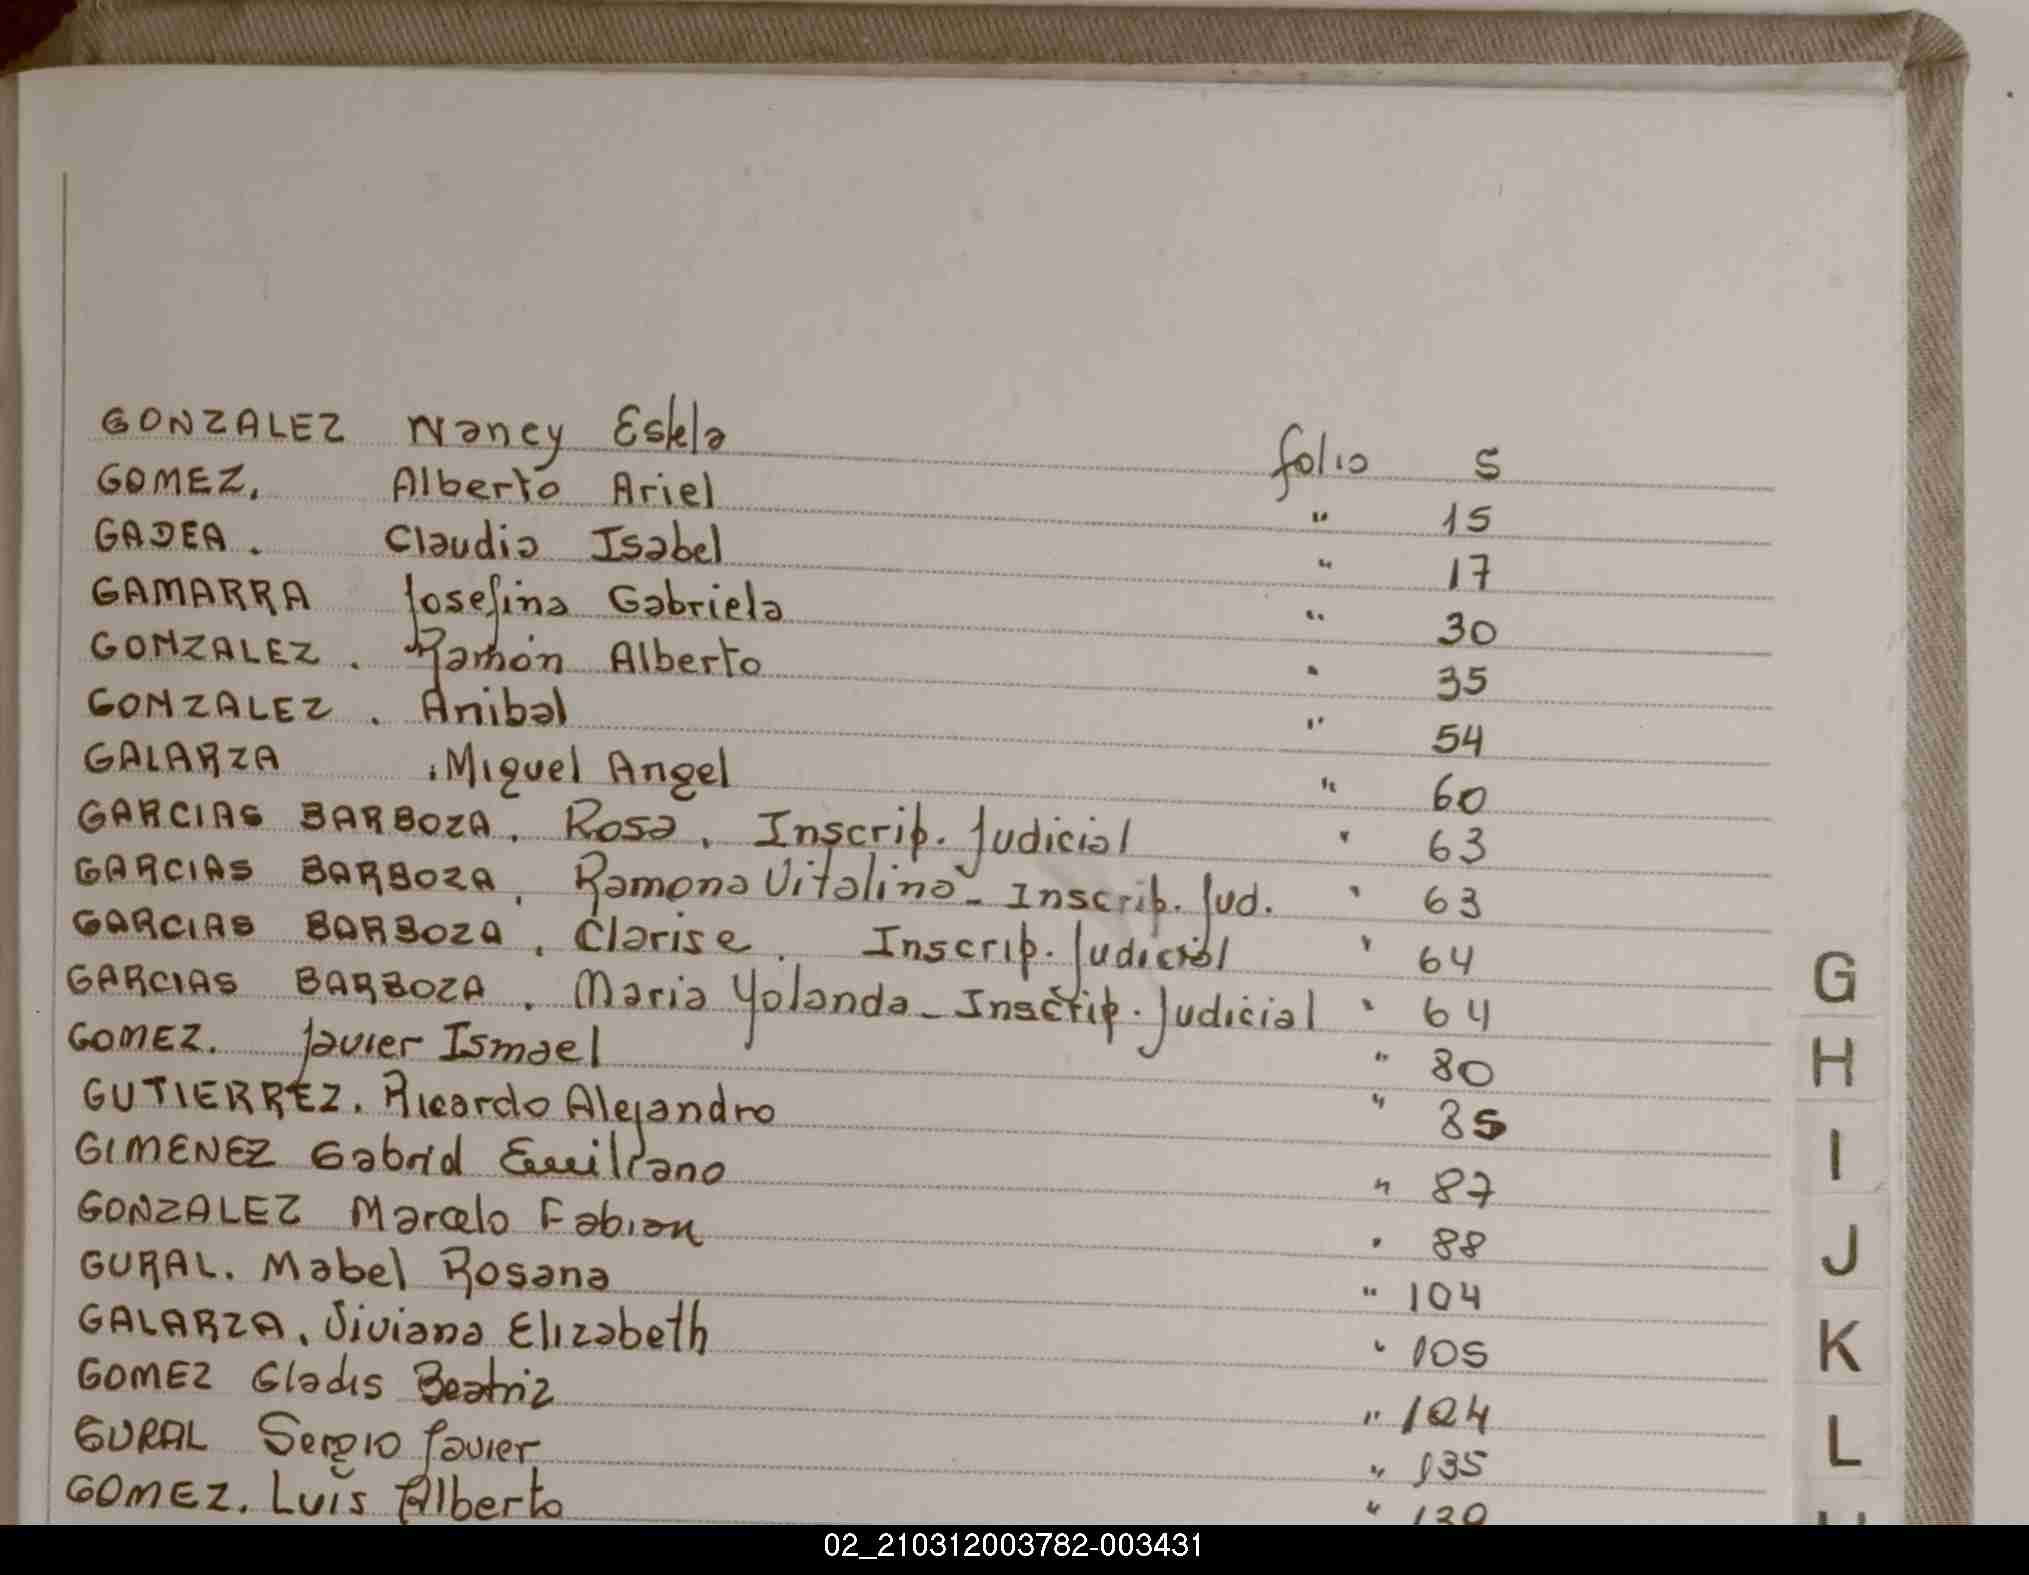 GONZALEZ Nancy Estela folio 5
GOMEZ, Alberto Ariel " 15
GADEA. Claudia Isabel " 17
GAMARRA Josefina Gabriela " 30
GONZALEZ. Ramón Alberto " 35
GONZALEZ. Anibal " 54
GALARZA . Miguel Angel " 60
GARCIAS BARBOZA, Rosa, Inscrip. Judicial " 63
GARCIAS BARBOZA, Ramona Vitalina - Inscrip. Jud. " 63
GARCIAS BARBOZA, Clarise. Inscrip. Judicial " 64
GARCIAS BARBOZA, Maria Yolanda - Inscrip. Judicial " 64
GOMEZ. Javier Ismael " 80
GUTIERREZ. Ricardo Alejandro " 85
GIMENEZ Gabriel Emiliano " 87
GONZALEZ Marcelo Fabian " 88
GURAL. Mabel Rosana " 104
GALARZA, Viviana Elizabeth " 105
GOMEZ Gladis Beatriz " 124
GURAL Sergio Javier " 135
GOMEZ. Luis Alberto "
G
H
I
J
K
L
02_210312003782-003431